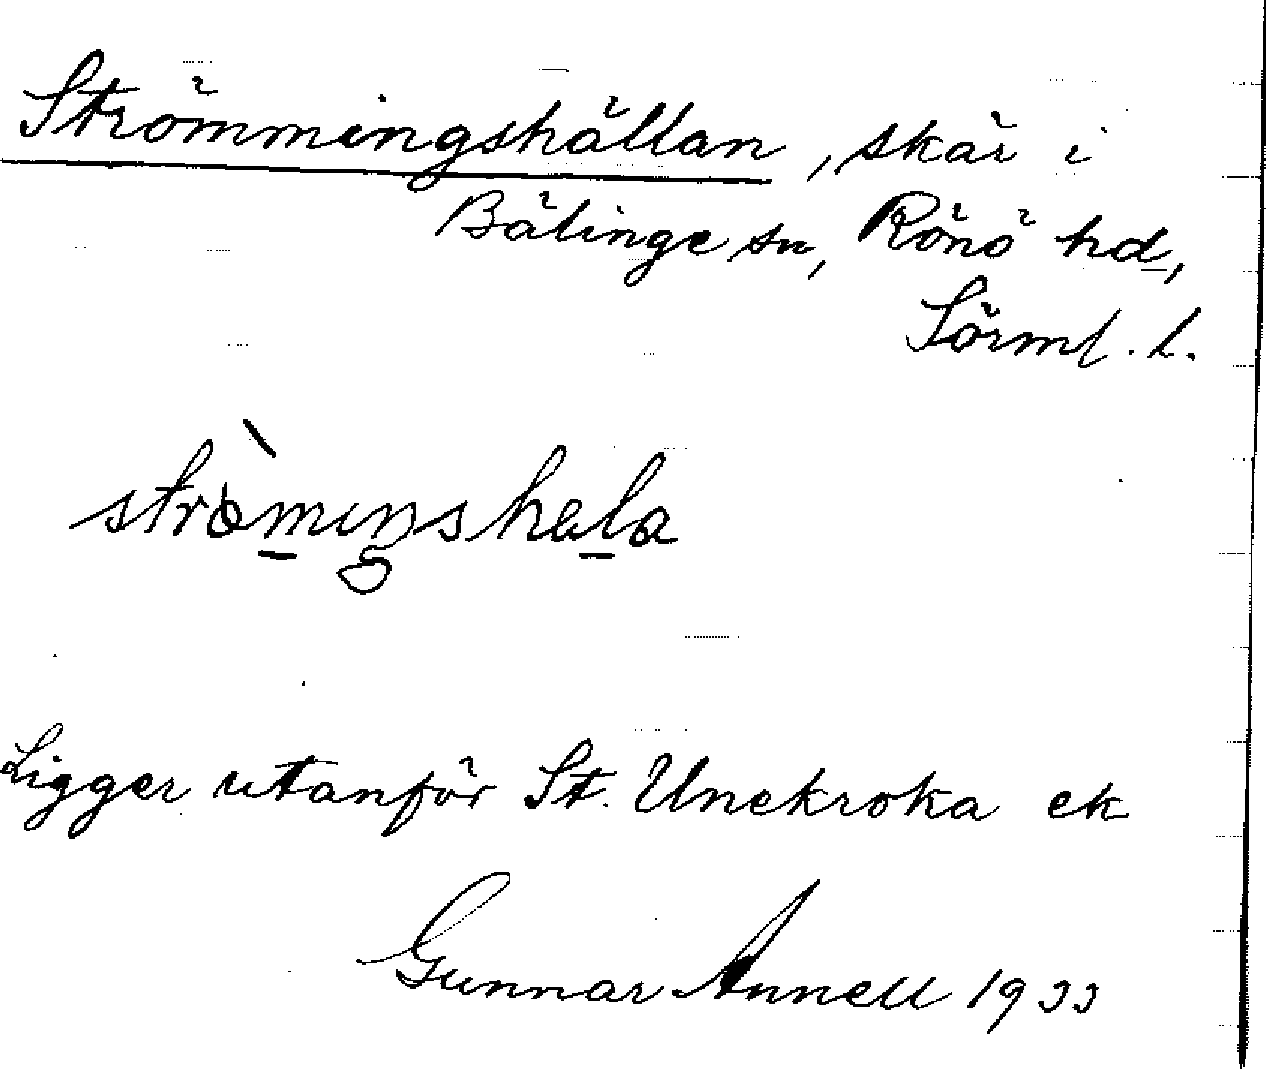 Strömmingshällan, skär i
Bälinge sn, Rönö hd,
Sörml. l.
Ligger utanför St. Unekroka ek
Gunnar Annell 1933